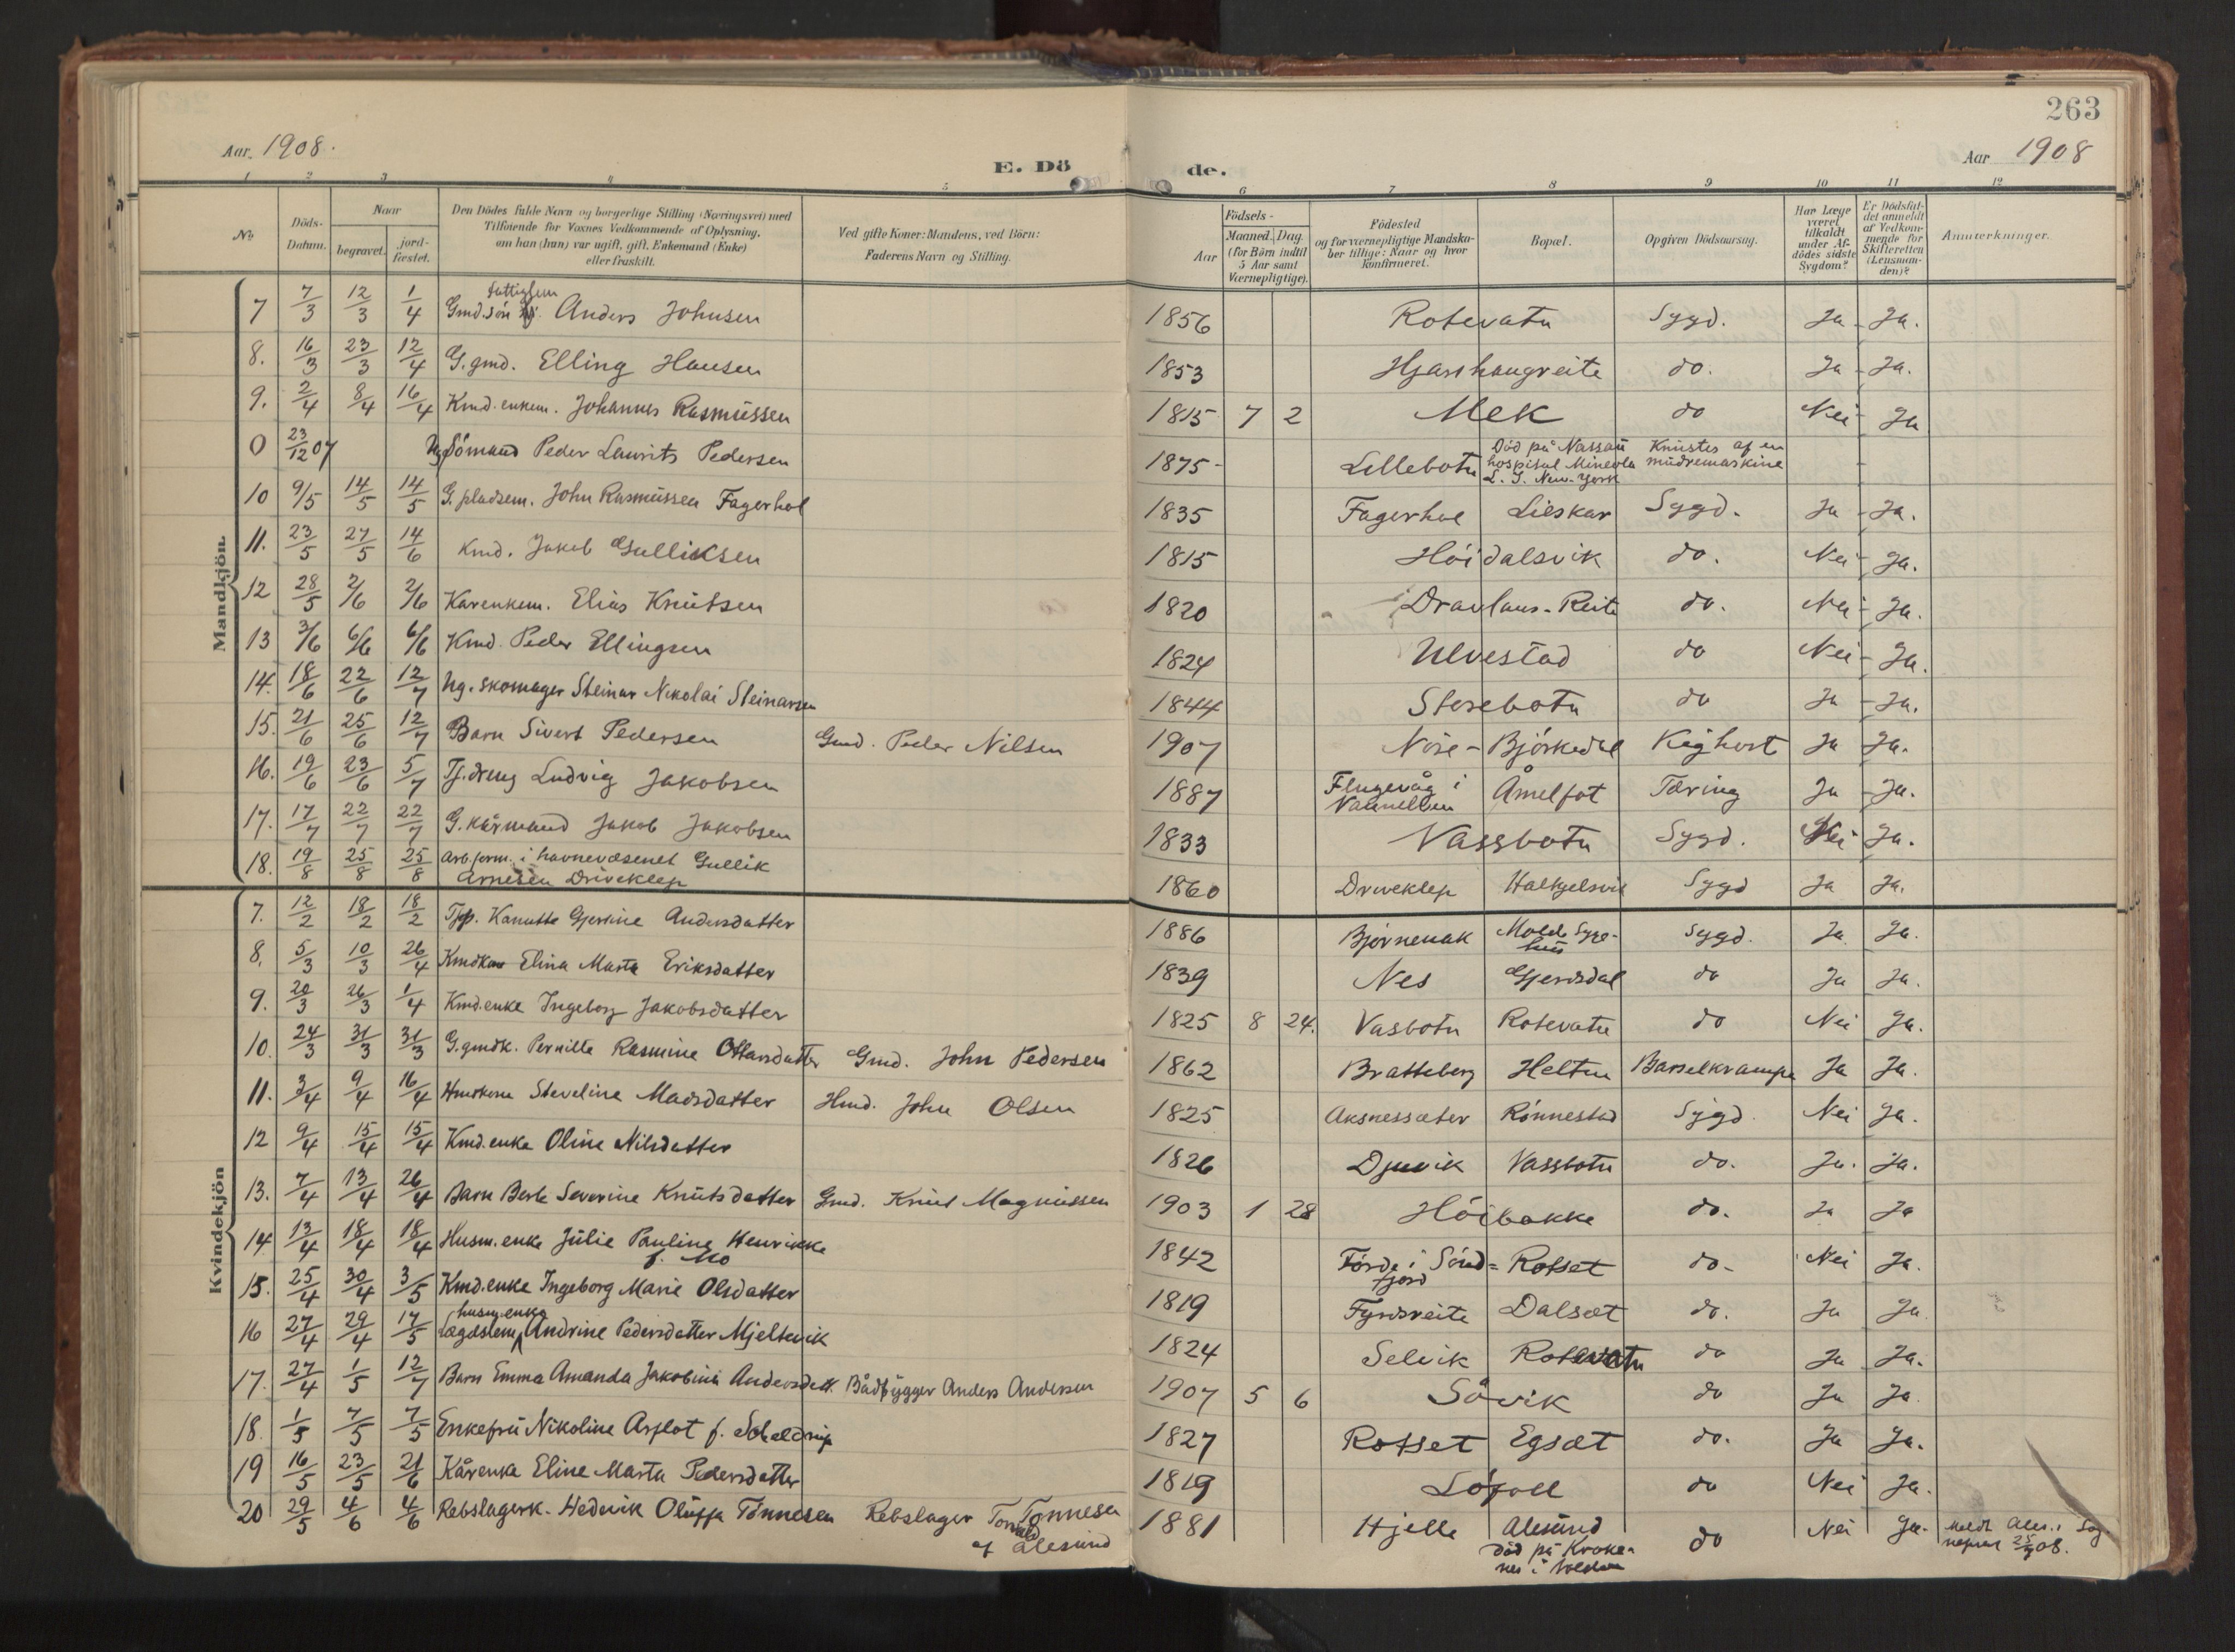 263
Aar 1908.
E. Döde.
Aar 1908
1 2 3 4 5 6 7 8 9 10 11 12
No
Döds-Datum.
Naar
begravet.
jord-fæstet.
Den Dödes fulde Navn og borgerlige Stilling (Næringsvei) med
Tilföiende for Voxnes Vedkommende af Oplysning,
om han (hun) var ugift, gift, Enkemand (Enke)
eller fraskilt.
Ved gifte Koner: Mandens, ved Börn:
Faderens Navn og Stilling.
Födsels-
Aar
Maaned. Dag
(for Börn indtil
5 Aar samt
Værnepligtige).
Födested
og for værnepligtige Mandska-
ber tillige: Naar og hvor
konfirmeret.
Bopæl.
Opgiven Dödsaarsag.
Har Læge
været
tilkaldt
under Af-
dödes sidste
Sygdom?
Er Dödsfal-
det anmeldt
af Vedkom-
mende for
Skifteretten
(Lensman-
den)?
Anmærkninger.
Mandkjön.
7 7/3 12/3 1/4 Gmd.sön Anders Johnsen 1856 Rotevatn Sygd. Ja Ja.
8. 16/3 23/3 12/4 G.gmd. Elling Hansen 1853 Hjarthaugreite do. Ja Ja.
9. 2/4 8/4 16/4 Kmd.enkem. Johannes Rasmussen 1815 7 2 Mek do Nei Ja
0 23/12 07 Ug Sömand Peder Laurits Pedersen 1875 Lillebotn Död på Nassau
hospital Mineola
L. I. New-York Knustes af en
mudremaskine
10 9/5 14/5 14/5 G.pladsem. John Rasmussen Fagerhol 1835 Fagerhol Lieskar Sygd. Ja Ja.
11. 23/5 27/5 14/6 Kmd. Jakob Gulliksen 1815 Höidalsvik do. Nei Ja.
12 28/5 2/6 2/6 Kårenkem. Elias Knutsen 1820 Dravlaus-Reite do. Nei Ja.
13 3/6 6/6 6/6 Kmd. Peder Ellingsen 1824 Ulvestad do Nei Ja.
14. 18/6 22/6 12/7 Ug. skomager Steinar Nikolai Steinarsen 1844 Störebotn do Ja Ja.
15. 21/6 25/6 12/7 Barn Sivert Pedersen Gmd. Peder Nilsen 1907 Nöre-Björkedal Kighost Ja Ja.
16. 19/6 23/6 5/7 Tj.dreng Ludvig Jakobsen 1887 Flugevåg i
Vannelven Åmelfot Tæring Ja Ja.
17. 17/7 22/7 22/7 G. kårmand Jakob Jakobsen 1833 Vassbotn Sygd. Nei Ja.
18. 19/8 25/8 25/8 Arb.form. i havnevæsenet Gullik
Arnesen Driveklep 1860 Driveklep Halkjelsvik Sygd Ja Ja.
Kvindekjön
7. 12/2 18/2 18/2 Tjp. Kanutte Gjertine Andersdatter 1886 Björnenak Molde Syge-
hus Sygd. Ja Ja.
8. 5/3 10/3 26/4 Kmdkone Elina Marta Eriksdatter 1839 Nes Gjerdsdal do Ja Ja.
9. 20/3 26/3 1/4 Kmd.enke Ingeborg Jakobsdatter 1825 8 24. Vasbotn Rotevatn do Nei Ja.
10. 24/3 31/3 31/3 G.gmdk. Pernille Rasmine Ottarsdatter Gmd. John Pedersen 1862 Bratteberg Heltne Barselkrampe Ja Ja.
11. 3/4 9/4 16/4 Hmdkone Steveline Madsdatter Hmd. John Olsen 1825 Aksnessæter Rönnestad Sygd. Nei Ja.
12 9/4 15/4 15/4 Kmd.enke Oline Nilsdatter 1826 Djuvik Vassbotn do. Ja. Ja.
13. 7/4 13/4 26/4 Barn Berte Severine Knutsdatter Gmd. Knut Magnussen 1903 1 28 Höibakke do. Ja Ja
14 13/4 18/4 18/4 Husm.enke Julie Pauline Henrikke
f. Mo 1842 Förde i Sönd-
fjord Rotset do. Nei Ja.
15. 25/4 30/4 3/5 Kmd.enke Ingeborg Marie Olsdatter 1819 Fyrdsreite Dalsæt do. Ja Ja
16 27/4 29/4 17/5 husm.enke
Lægdslem Andrine Pedersdatter Mjeltevik 1824 Selvik Rotevatn do Ja Ja.
17. 27/4 1/5 12/7 Barn Emma Amanda Jakobine Andersdatt. Bådbygger Anders Andersen 1907 5 6 Såvik do Ja Ja.
18. 1/5 7/5 7/5 Enkefru Nikoline Arflot f. Scheldrup 1827 Rotset Egsæt do. Ja Ja.
19 16/5 23/5 21/6 Kårenke Eline Marta Pedersdatter 1819 Löfoll do Nei Ja.
20 29/5 4/6 4/6 Rebslagerk. Hedevik Oluffa Tönnesen Rebslager Tönnesen
af Ålesund 1881 Hjelle Ålesund
död på Kroke-
nes i Volden do Nei Ja. Meldt Åles.